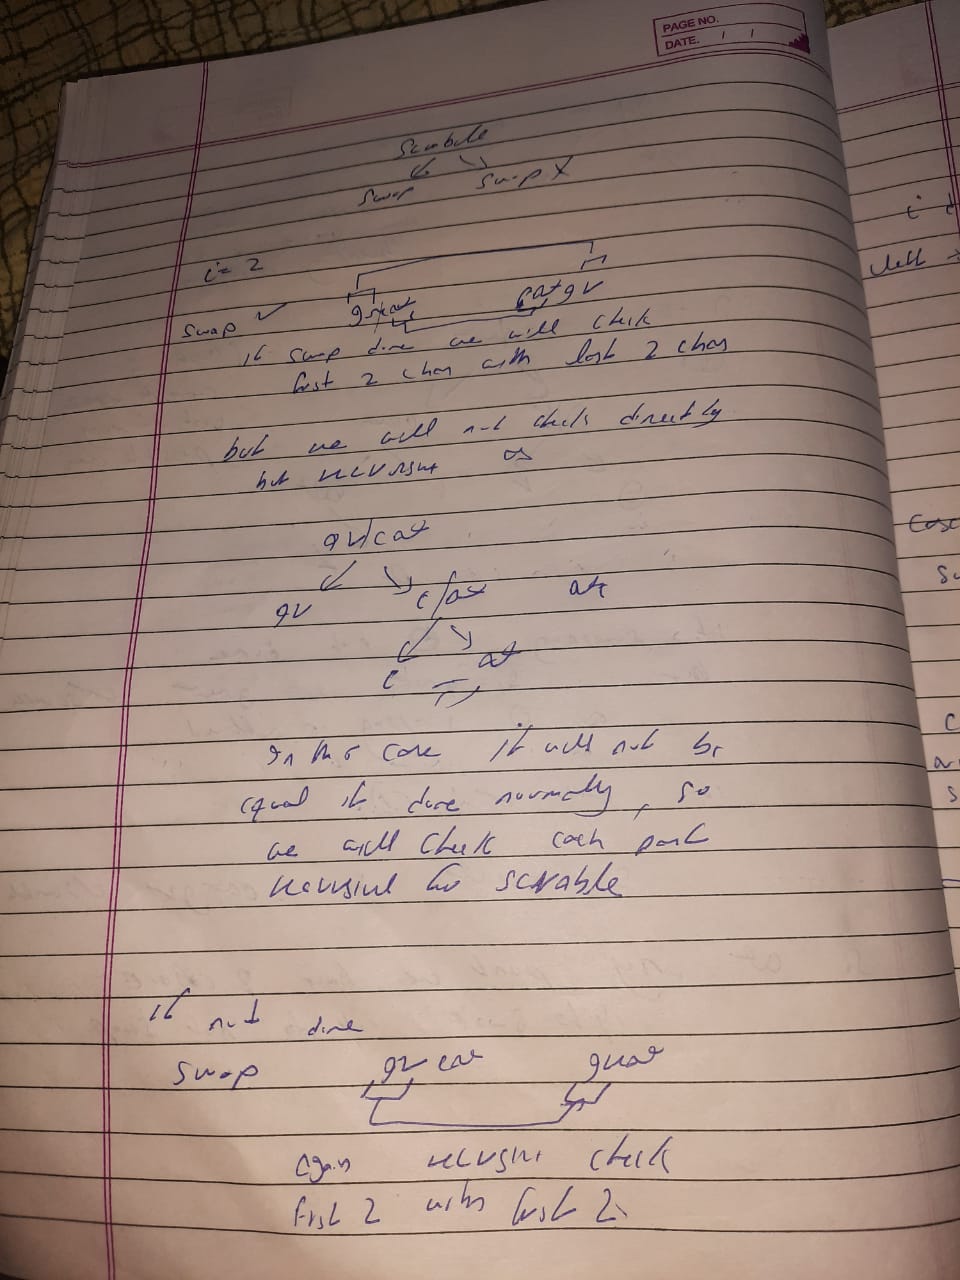 PAGE NO.
DATE. / /
Scrabble
Swap Swap X
i = 2
Swap ✓ gr/eat eatgr
if swap done we will check
first 2 char with last 2 char
but we will not check directly
but recursive as
gr/eat
gr e/at ate
e at
In this case it will not be
equal if done normally, so
we will check each part
recursive for scrable
if not done
swap gr eat great
again recursive check
first 2 with first 2.
left
Case